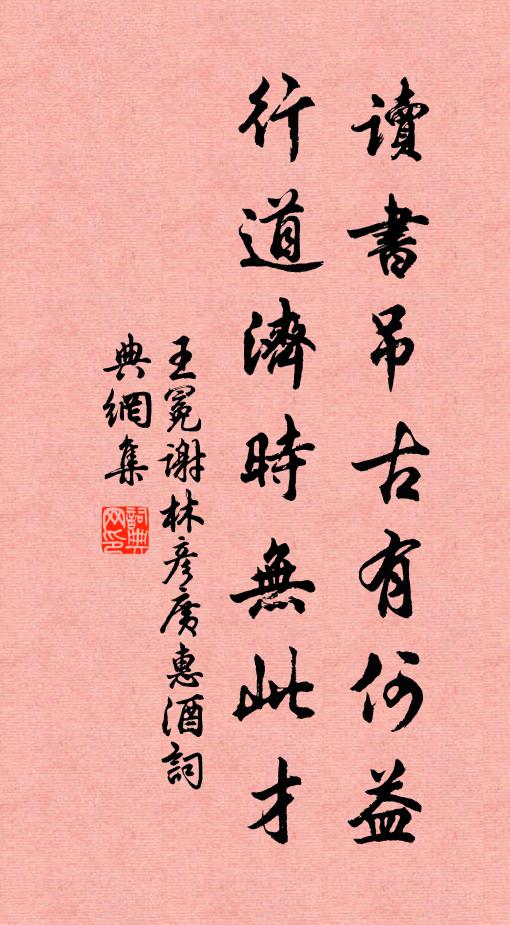 讀書吊古有何益
行道濟時無此才
王冕謝林彦廣惠酒詞
典網集
詞典網印